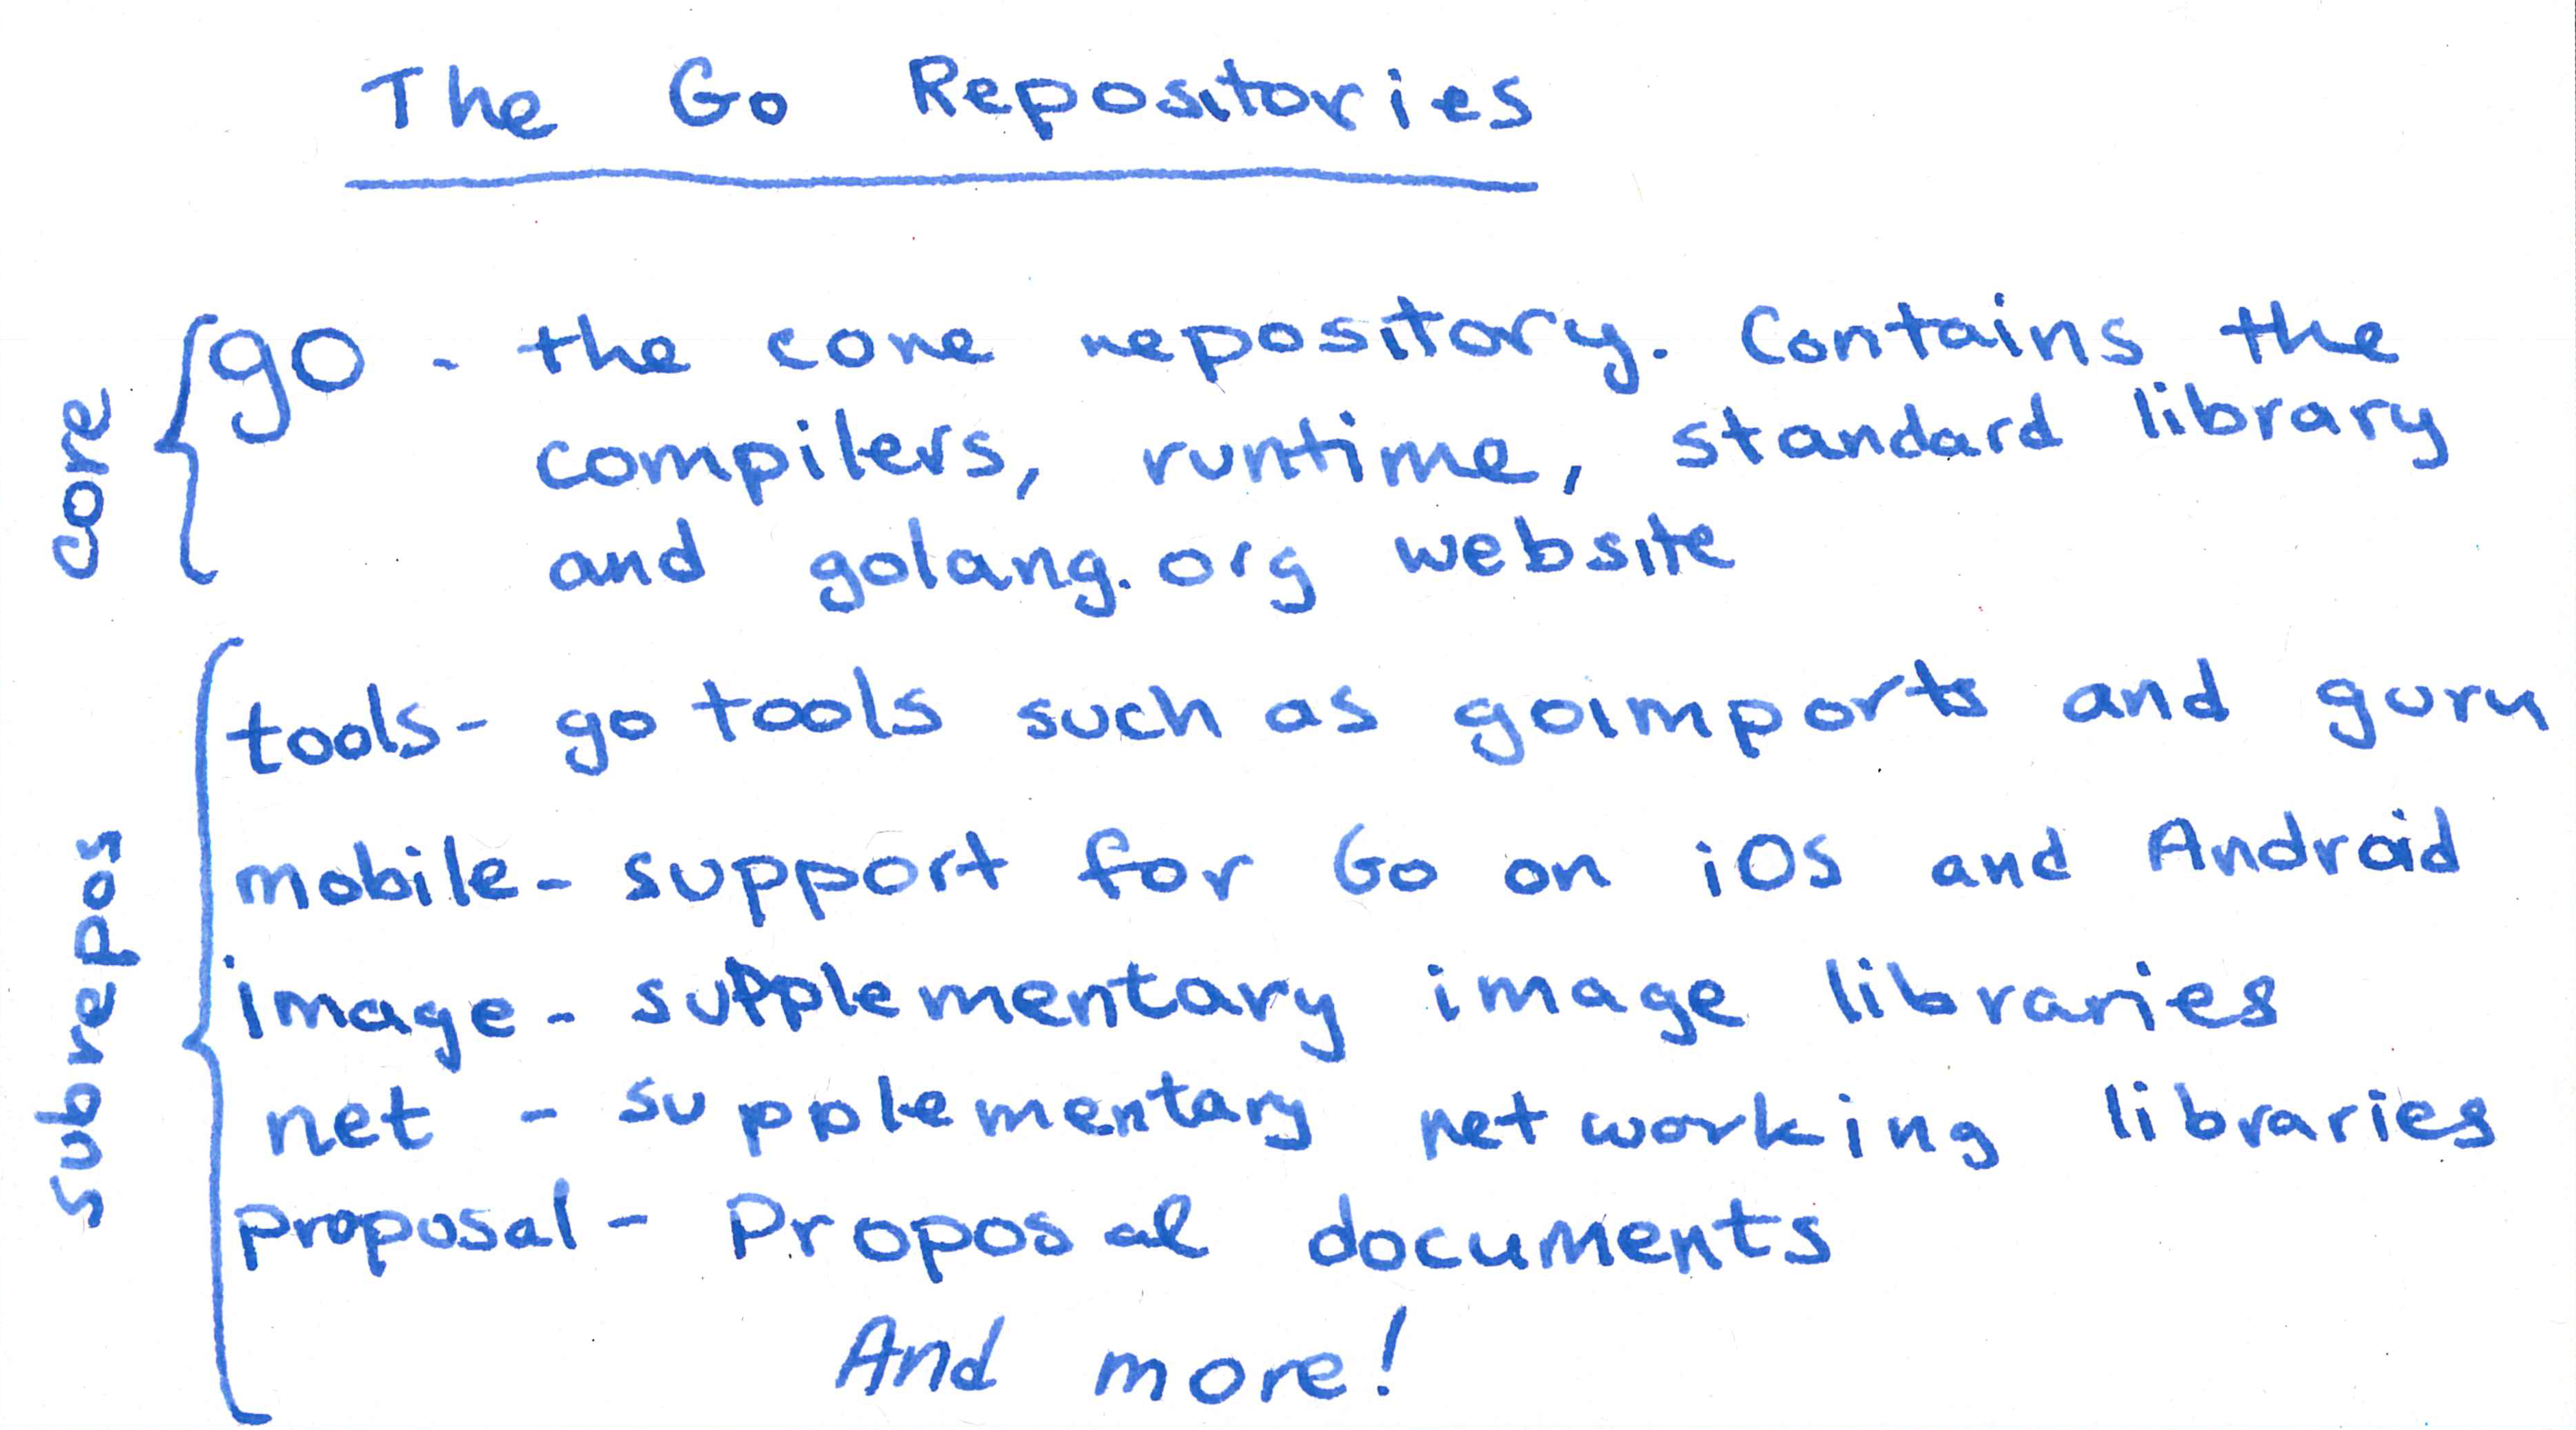 The Go Repositories
core
go - the core repository. Contains the
compilers, runtime, standard library
and golang.org website
subrepos
tools - go tools such as goimports and guru
mobile - support for Go on iOS and Android
image - supplementary image libraries
net - supplementary networking libraries
proposal - Proposal documents
And more!